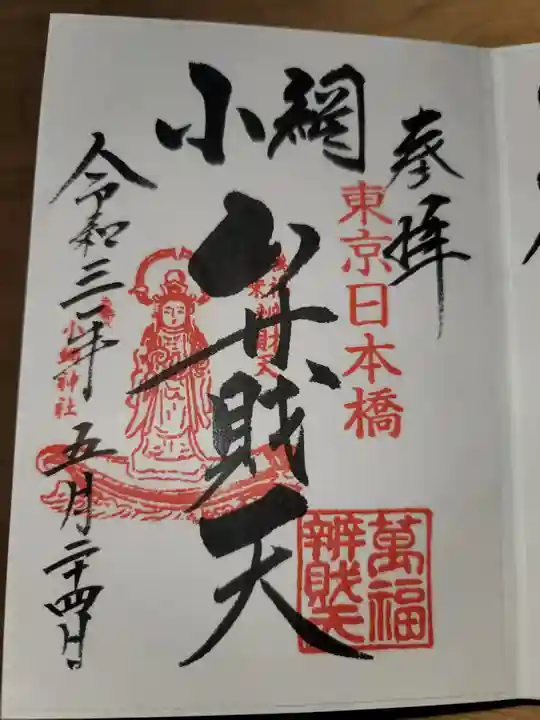 奉拝
東京日本橋
小網
弁財天
萬福
辨財天
萬福
舟乗弁財天
小網神社
令和三年五月二十四日